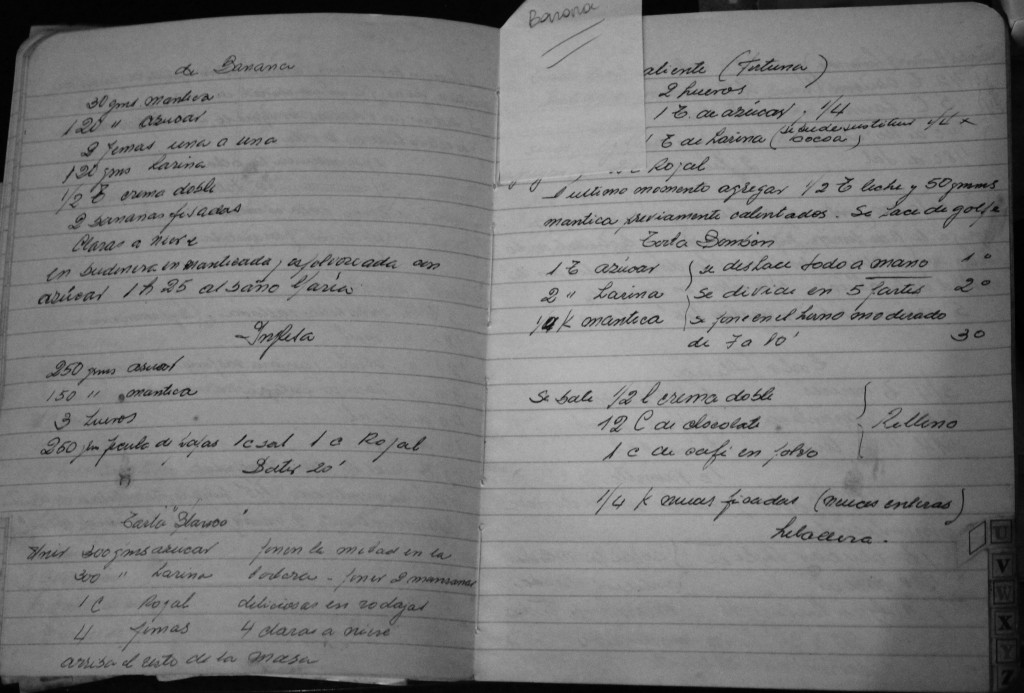 de Banana
30 gms manteca
120 " azucar
2 yemas una a una
120 gms harina
1/2 T crema doble
2 bananas pisadas
Claras a nieve
en budinera enmantecada, espolvoreada con
azúcar 1h 25 al baño María
Inglesa
250 gms azucar
150 " manteca
3 huevos
250 gm fecula de papas 1 c sal 1 c Royal
Batir 20'
Torta
Unir 300 gms azucar poner la mitad en la
300 " harina poner 2 manzanas
1 C Royal deliciosas en rodajas
4 yemas 4 claras a nieve
arriba el resto de la masa
Banana
aliente (Fortuna)
2 huevos
1 T. de azúcar . 1/4
1 T de harina (se puede sustituir 1/4 x
cocoa)
Royal
ultimo momento agregar 1/2 T leche y 50 gmms
manteca previamente calentados. Se hace de golpe
Torta Bombón
1 T azúcar se deshace todo a mano 1º
2 " harina se divide en 5 partes 2º
1/4 K manteca se pone en el horno moderado
de 7 a 10' 3º
Se bate 1/2 l crema doble
12 C de chocolate Relleno
1 c de café en polvo
1/4 K nueces picadas (nueces enteras)
heladera.
U
V
W
X
Y
Z